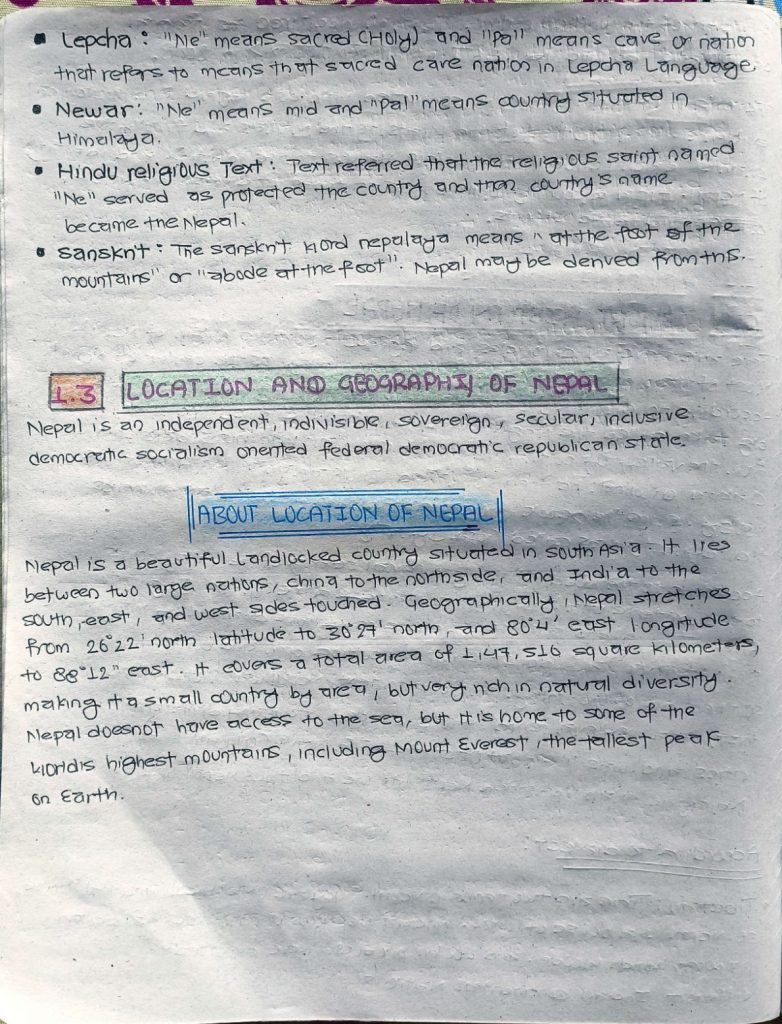 ▪ Lepcha : "Ne" means sacred (Holy) and "Pal" means cave or nation
that refers to means that sacred cave nation in Lepcha Language
• Newar: "Ne" means mid and "Pal" means country situated in
Himalaya.
• Hindu religious Text : Text referred that the religious saint named
"Ne" served as protected the country and then country's name
became the Nepal.
• Sanskrit : The sanskrit word nepalaya means "at the foot of the
mountains" or "abode at the foot". Nepal may be derived from ths.
1.3 LOCATION AND GEOGRAPHY OF NEPAL
Nepal is an independent, indivisible, sovereign, secular, inclusive
democratic socialism oriented federal democratic republican state.
ABOUT LOCATION OF NEPAL
Nepal is a beautiful Landlocked country situated in South Asia. It lies
between two large nations, china to the northside, and India to the
south, east, and west sides touched. Geographically, Nepal stretches
from 26°22' north latitude to 30°27' north, and 80°4' east longitude
to 88°12" east. It covers a total area of 1,47,516 square kilometers,
making it a small country by area, but very rich in natural diversity.
Nepal doesnot have access to the sea, but it is home to some of the
world's highest mountains, including Mount Everest, the tallest peak
on Earth.